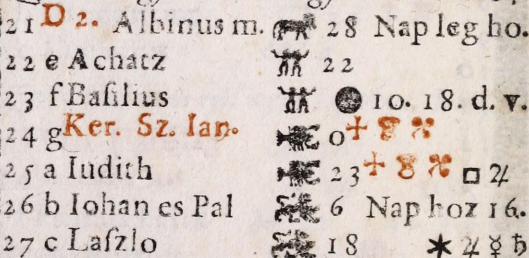 21 D 2. Albinus m. 28 Nap leg ho.
22 e Achatz 22
23 f Baſilius 10. 18. d. v.
24 g Ker. Sz. Ian. 0
25 a Iudith 23 □ ♃
26 b Iohan es Pal 6 Nap hoz 16.
27 c Laſzlo 18 ✶ ♃ ☿ ♄